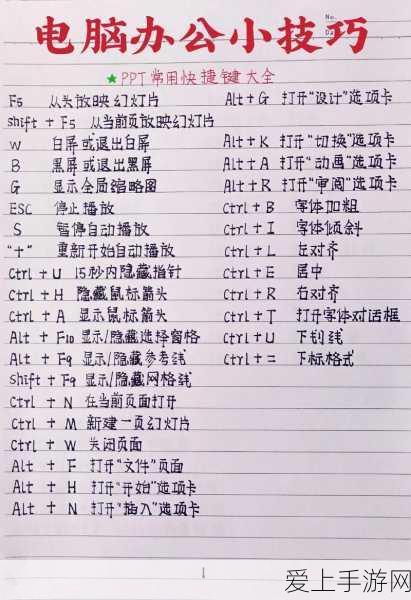 No.
Da
电脑办公小技巧
★PPT常用快捷键大全
F5 从头放映幻灯片
Shift + F5 从当前页放映幻灯片
W 白屏或退出白屏
B 黑屏或退出黑屏
G 显示全局缩略图
ESC 停止播放
S 暂停自动播放
"+" 重新开始自动播放
Ctrl + U 15秒内隐藏指针
Ctrl + H 隐藏鼠标箭头
Ctrl + A 显示鼠标箭头
Alt + F10 显示/隐藏选择窗格
Alt + F9 显示/隐藏参考线
Shift + F9 显示/隐藏网格线
Ctrl + N 在当前页面打开
Ctrl + M 新建一页幻灯片
Ctrl + W 关闭页面
Alt + F 打开"文件"页面
Alt + H 打开"开始"选项卡
Alt + N 打开"插入"选项卡
Alt + G 打开"设计"选项卡
Alt + K 打开"切换"选项卡
Alt + A 打开"动画"选项卡
Alt + R 打开"审阅"选项卡
Ctrl + B 字体加粗
Ctrl + I 字体倾斜
Ctrl + L 左对齐
Ctrl + E 居中
Ctrl + R 右对齐
Ctrl + T 打开字体对话框
Ctrl + U 下划线
Ctrl + = 下标格式
1
爱上手游网